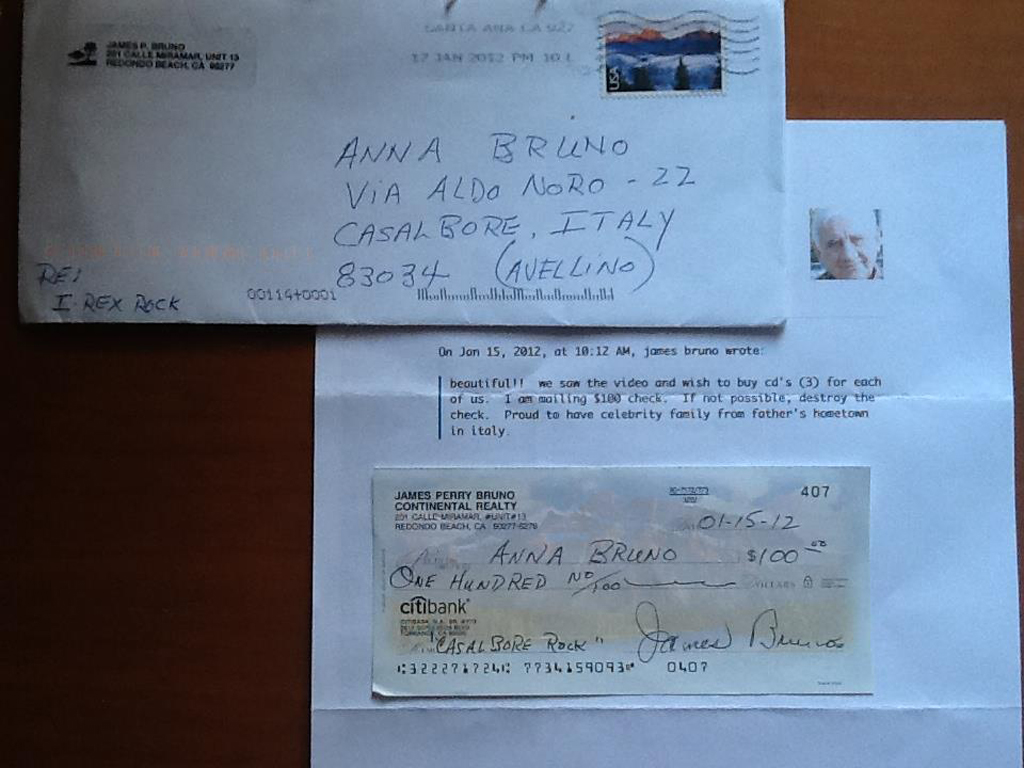 JAMES P. BRUNO
201 CALLE MIRAMAR, UNIT 13
REDONDO BEACH, CA 90277
SANTA ANA CA 927
17 JAN 2012 PM 10 L
USA
ANNA BRUNO
VIA ALDO NORO - 22
CASALBORE, ITALY
83034 (AVELLINO)
RE:
I-REX ROCK
00114+0001
On Jan 15, 2012, at 10:12 AM, james bruno wrote:
beautiful!! we saw the video and wish to buy cd's (3) for each
of us. I am mailing $100 check. If not possible, destroy the
check. Proud to have celebrity family from father's hometown
in italy.
JAMES PERRY BRUNO
CONTINENTAL REALTY
201 CALLE MIRAMAR, #UNIT#13
REDONDO BEACH, CA
407
01-15-12
ANNA BRUNO $100 00
ONE HUNDRED NO/100 DOLLARS
citibank
"CASALBORE ROCK" James Bruno
0407